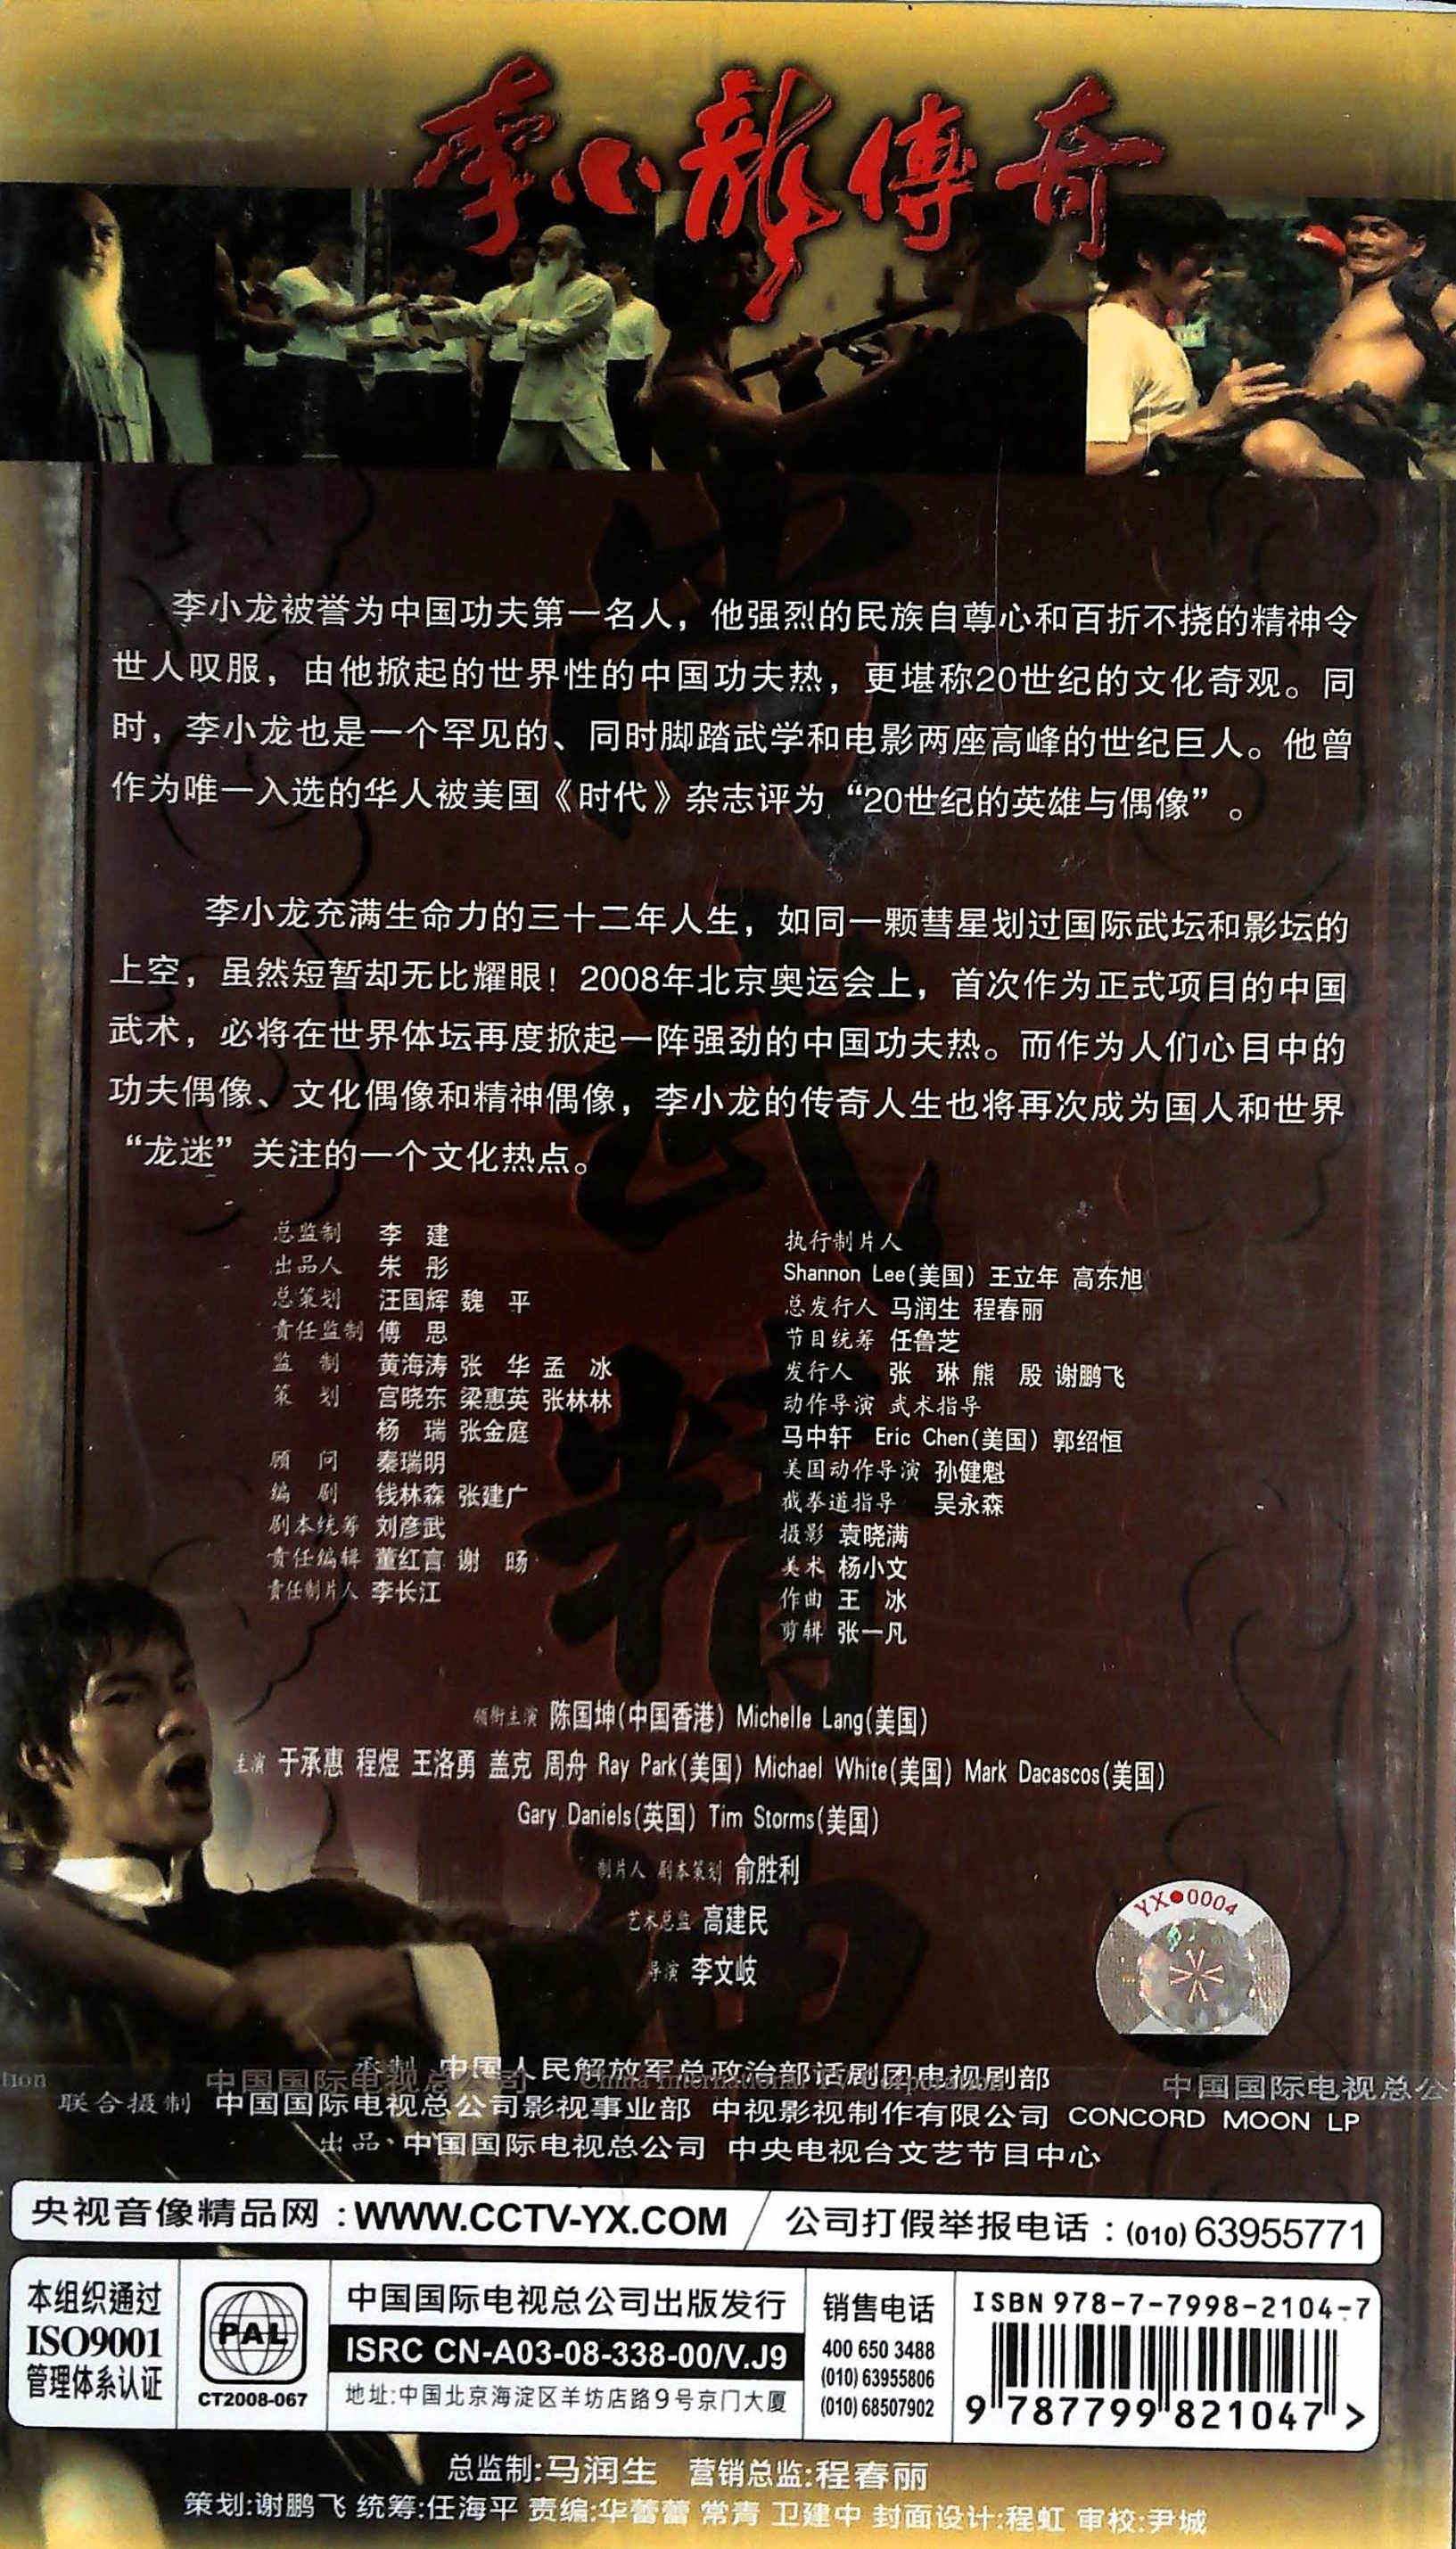 李小龍傳奇
尚武精神
李小龙被誉为中国功夫第一名人，他强烈的民族自尊心和百折不挠的精神令
世人叹服，由他掀起的世界性的中国功夫热，更堪称20世纪的文化奇观。同
时，李小龙也是一个罕见的、同时脚踏武学和电影两座高峰的世纪巨人。他曾
作为唯一入选的华人被美国《时代》杂志评为“20世纪的英雄与偶像”。
李小龙充满生命力的三十二年人生，如同一颗彗星划过国际武坛和影坛的
上空，虽然短暂却无比耀眼！2008年北京奥运会上，首次作为正式项目的中国
武术，必将在世界体坛再度掀起一阵强劲的中国功夫热。而作为人们心目中的
功夫偶像、文化偶像和精神偶像，李小龙的传奇人生也将再次成为国人和世界
“龙迷”关注的一个文化热点。
总监制 李 建
出品人 朱 彤
总策划 汪国辉 魏 平
责任监制 傅 思
监 制 黄海涛 张 华 孟 冰
策 划 宫晓东 梁惠英 张林林
杨 瑞 张金庭
顾 问 秦瑞明
编 剧 钱林森 张建广
剧本统筹 刘彦武
责任编辑 董红言 谢 旸
责任制片人 李长江
执行制片人
Shannon Lee(美国) 王立年 高东旭
总发行人 马润生 程春丽
节目统筹 任鲁芝
发行人 张 琳 熊 殷 谢鹏飞
动作导演 武术指导
马中轩 Eric Chen(美国) 郭绍恒
美国动作导演 孙健魁
截拳道指导 吴永森
摄影 袁晓满
美术 杨小文
作曲 王 冰
剪辑 张一凡
领衔主演 陈国坤(中国香港) Michelle Lang(美国)
主演 于承惠 程煜 王洛勇 盖克 周舟 Ray Park(美国) Michael White(美国) Mark Dacascos(美国)
Gary Daniels(英国) Tim Storms(美国)
制片人 剧本策划 俞胜利
艺术总监 高建民
导演 李文岐
YX●0004
承制 中国人民解放军总政治部话剧团电视剧部
tion 中国国际电视总公司 China International TV Corporation 中国国际电视总公
联合摄制 中国国际电视总公司影视事业部 中视影视制作有限公司 CONCORD MOON LP
出品 中国国际电视总公司 中央电视台文艺节目中心
央视音像精品网：WWW.CCTV-YX.COM / 公司打假举报电话：(010) 63955771
本组织通过
ISO9001
管理体系认证
PAL
CT2008-067
中国国际电视总公司出版发行
ISRC CN-A03-08-338-00/V.J9
地址:中国北京海淀区羊坊店路9号京门大厦
销售电话
400 650 3488
(010) 63955806
(010) 68507902
ISBN 978-7-7998-2104-7
9 787799 821047 >
总监制:马润生 营销总监:程春丽
策划:谢鹏飞 统筹:任海平 责编:华蕾蕾 常青 卫建中 封面设计:程虹 审校:尹城